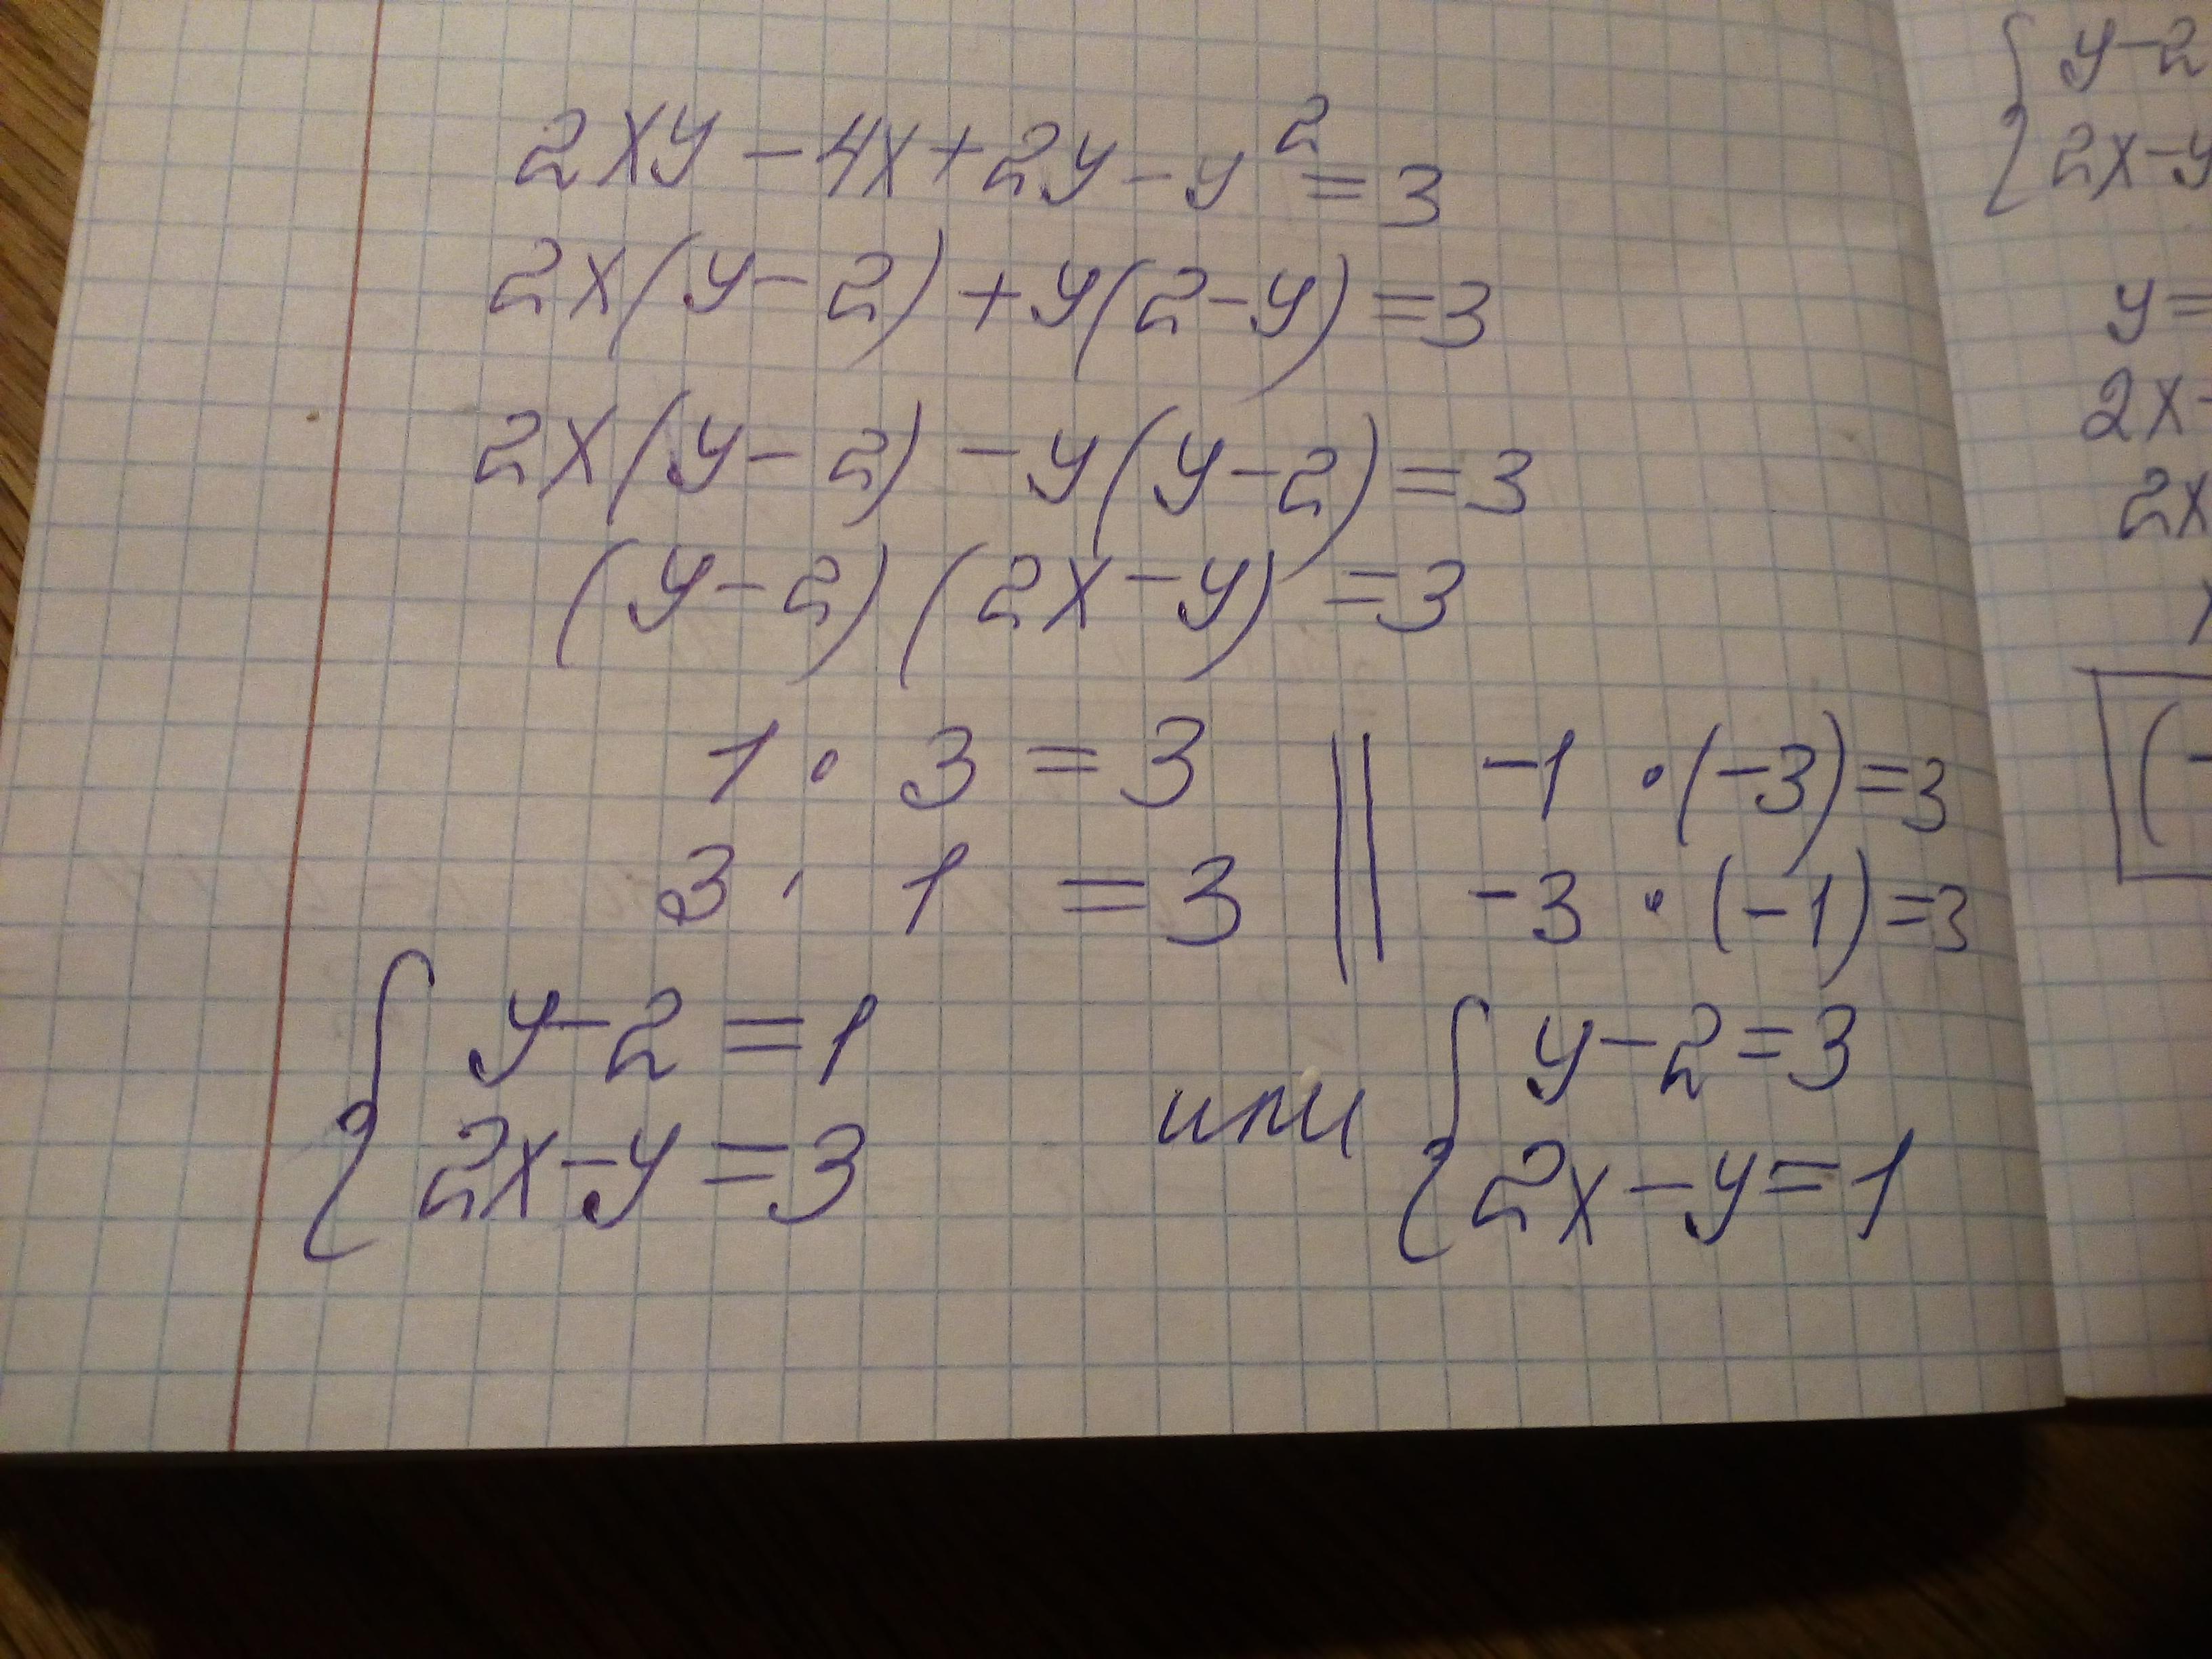 2xy - 4x + 2y - y² = 3
2x(y - 2) + y(2 - y) = 3
2x(y - 2) - y(y - 2) = 3
(y - 2)(2x - y) = 3
1 · 3 = 3 || -1 · (-3) = 3
3 · 1 = 3 || -3 · (-1) = 3
{ y - 2 = 1
2x - y = 3
или
{ y - 2 = 3
2x - y = 1
{ y - 2
2x - y
y =
2x -
2x
(-